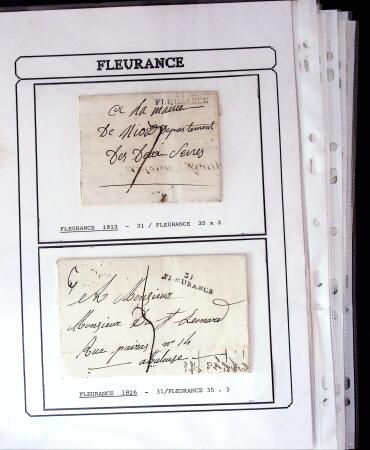 FLEURANCE
FLEURANCE
a la mairie
De Niort Departement
Des Deux Sevres
FLEURANCE 1813 - 31 / FLEURANCE 35 x 3
31
FLEURANCE
A Monsieur
Monsieur De St Leonard
Rue n° 14
a toulouse
FLEURANCE 1826 - 31/FLEURANCE 35 . 3